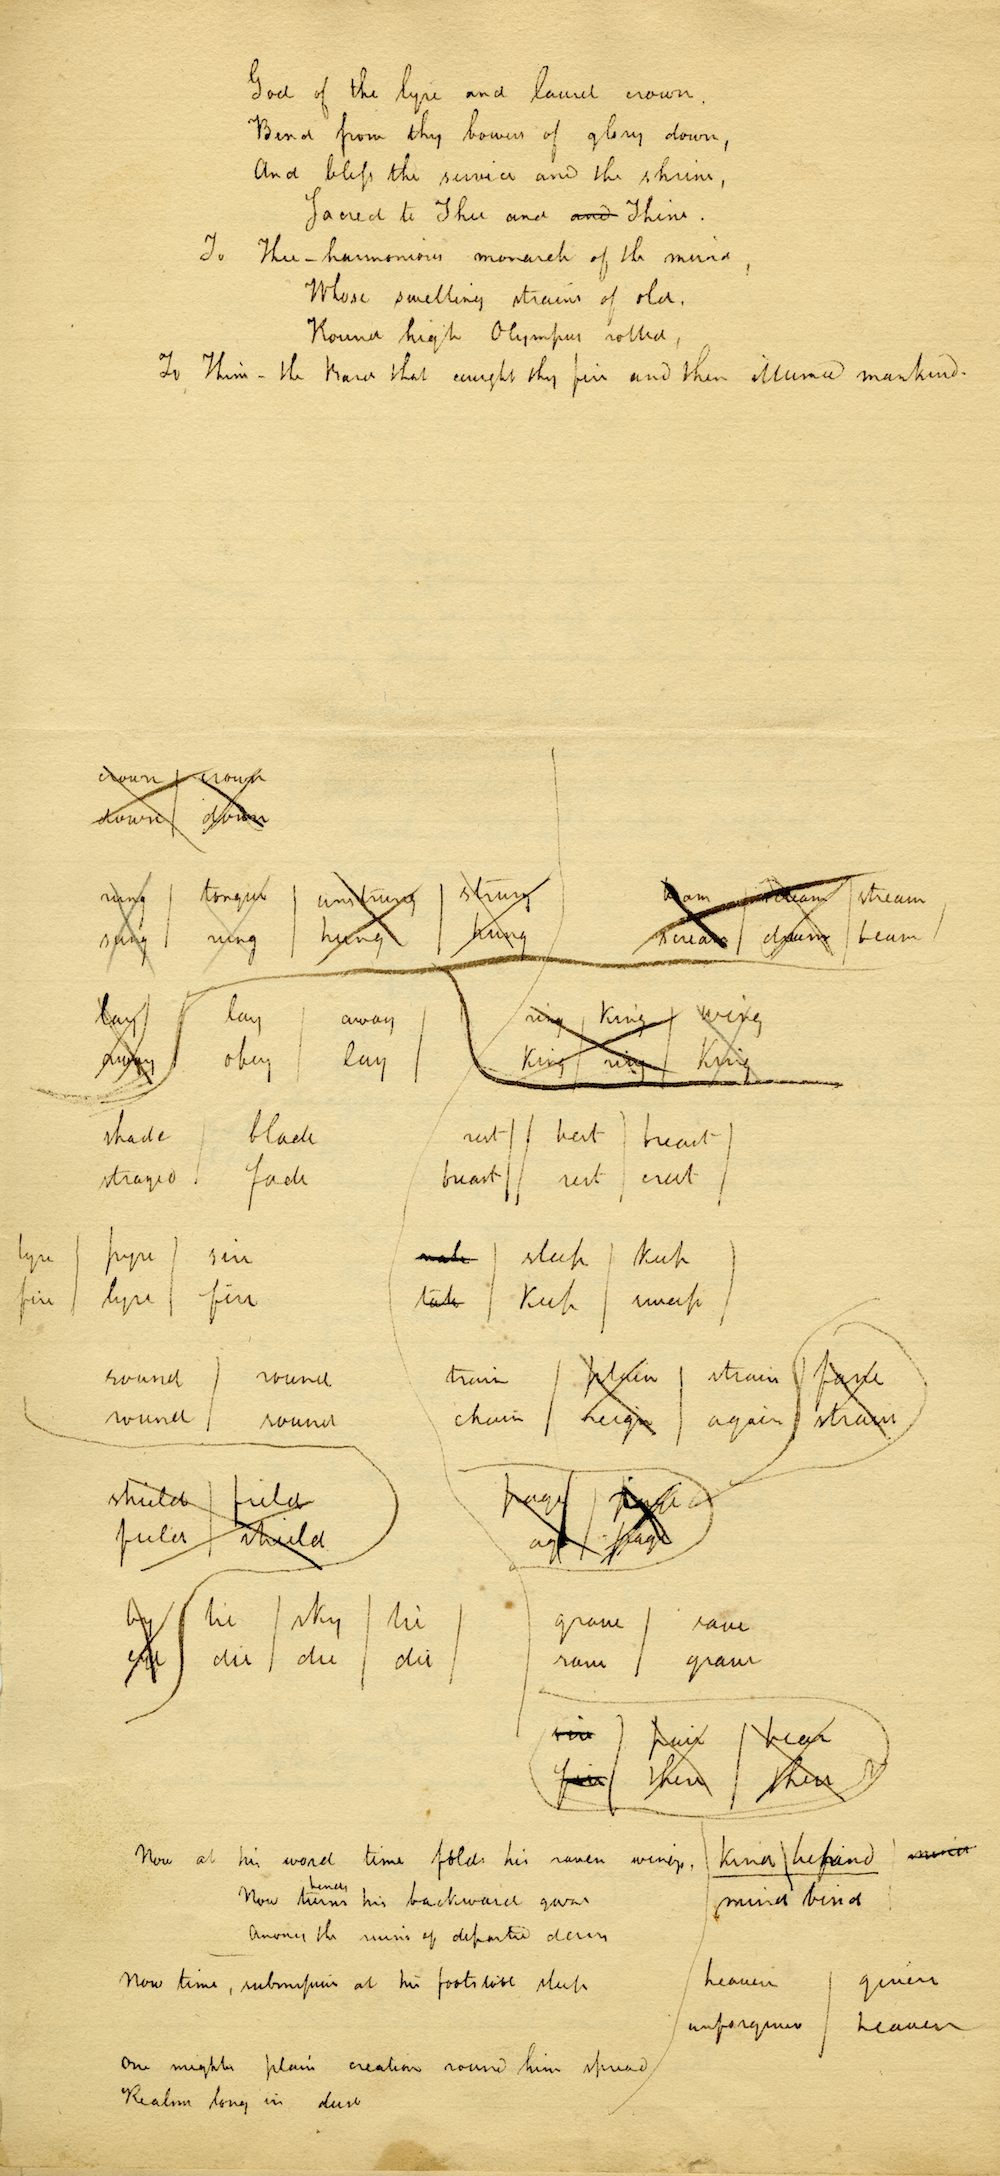 God of the lyre and laurel crown,
Bend from thy bowers of glory down,
And bless the service and the shrine,
Sacred to Thee and and Thine.
To Thee - harmonious monarch of the mind,
Whose swelling strains of old,
Round high Olympus rolled,
To Thine - the Bard that caught thy fire and then illumed mankind.
crown | crown
down | down
rung | tongue | unstrung | strung
sung | rung | hung | hung
scream | stream
scream | dream | beam
lay | lay | away
away | obey | lay
ring | King | wing
King | ring | King
shade | blade
strayed | fade
rest | best | breast
breast | rest | crest
lyre | pyre | sire
fire | lyre | fire
sleep | keep
take | Keep | sweep
sound | round
round | sound
train | plain | strain | fane
chain | reign | again | strain
shield | field
field | shield
page
age | page
by | lie | sky | lie
eye | die | die | die
grave | save
save | grave
sire | pair | bear
fire | there | there
Now at his word time folds his raven wings,
kind | behind | mind
bends
Now turns his backward gaze
mind bind
Among the ruins of departed days
Now time, submissive at his footstool sleeps
heaven | given
unforgiven | heaven
One mighty plain creation round him spread
Realms long in dust